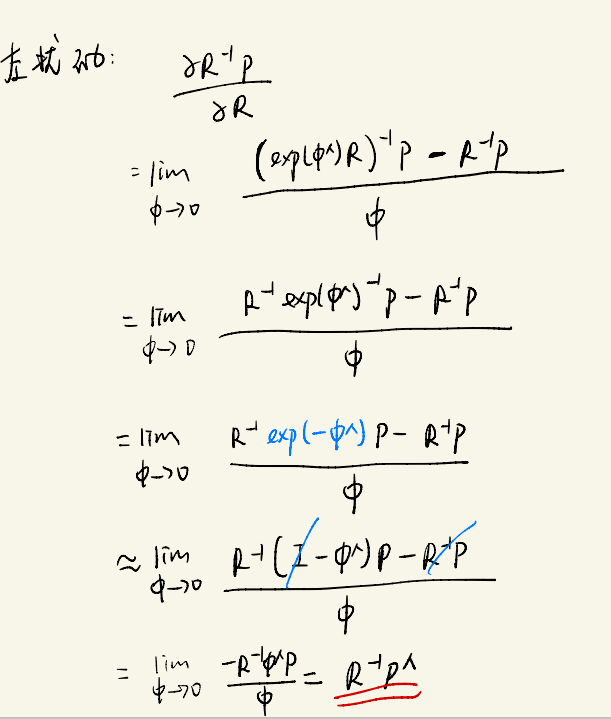 左扰动:
∂R⁻¹P / ∂R
= lim_{φ→0} ((exp(φ^)R)⁻¹P − R⁻¹P) / φ
= lim_{φ→0} (R⁻¹ exp(φ^)⁻¹P − R⁻¹P) / φ
= lim_{φ→0} (R⁻¹ exp(−φ^) P − R⁻¹P) / φ
≈ lim_{φ→0} (R⁻¹(I − φ^)P − R⁻¹P) / φ
= lim_{φ→0} (−R⁻¹φ^P) / φ = R⁻¹P^